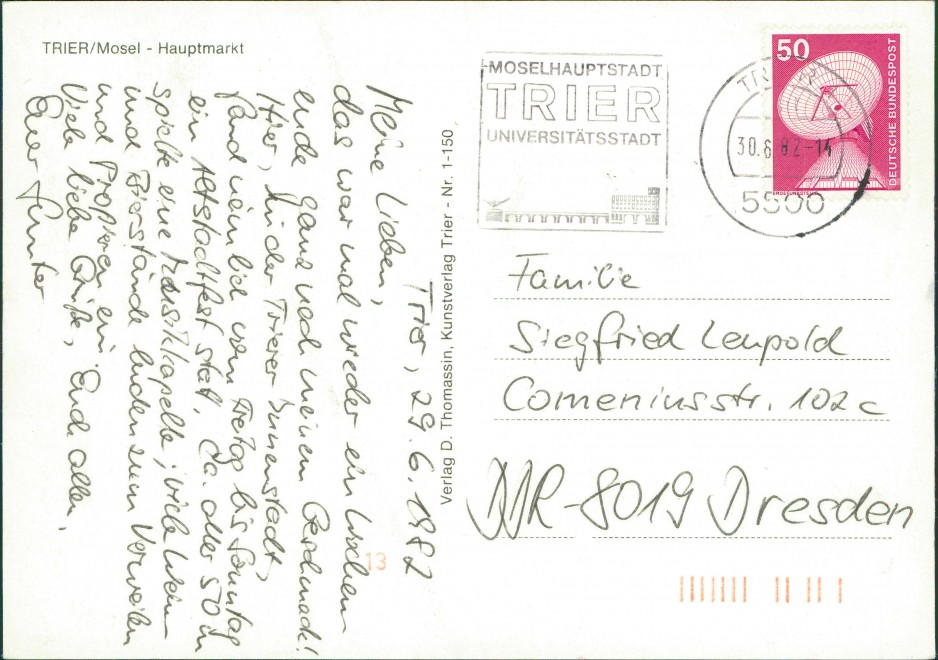 TRIER/Mosel - Hauptmarkt
Trier, 29.6.1982
Meine Lieben,
das war mal wieder ein Wochen-
ende ganz nach meinem Geschmack!
Hier, in der Trierer Innenstadt,
fand nämlich von Freitag bis Sonntag
ein Altstadtfest statt. Ca. alle 50 m
spielte eine Musikkapelle, viele Wein-
und Bierstände luden zum Verweilen
und ein.
Viele liebe Grüße, Euch allen,
Euer
Verlag D. Thomassin, Kunstverlag Trier - Nr. 1-150
MOSELHAUPTSTADT
TRIER
UNIVERSITÄTSSTADT
TRIER
30.6.82-14
5500
50
DEUTSCHE BUNDESPOST
Familie
Siegfried Leupold
Comeniusstr. 102c
DDR-8019 Dresden
13